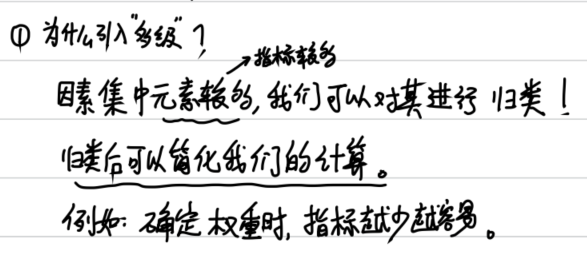 ① 为什么引入"多级"？
→指标较多
因素集中元素较多,我们可以对其进行 归类！
归类后可以简化我们的计算。
例如: 确定权重时, 指标越少越容易。